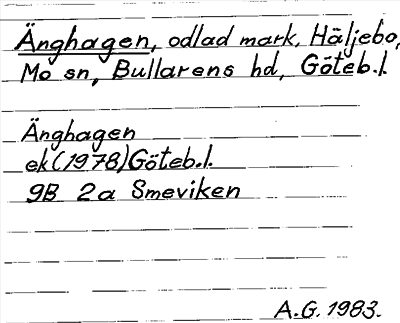 Änghagen, odlad mark, Häljebo,
Mo sn, Bullarens hd, Göteb.l.
Änghagen
ek(1978)Göteb.l.
9B 2a Smeviken
A.G. 1983.